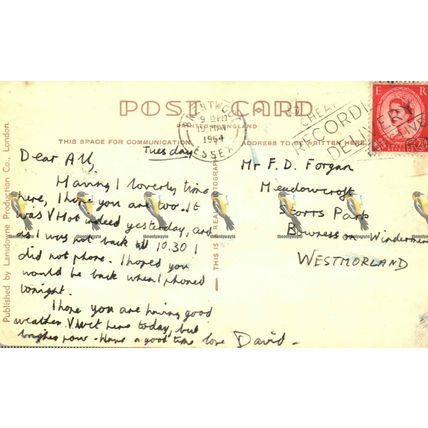 POST CARD
PRINTED IN ENGLAND
THIS SPACE FOR COMMUNICATION
ADDRESS TO BE WRITTEN HERE
Published by Lansdowne Production Co., London.
THIS IS A REAL PHOTOGRAPH
BRENTWOOD
1964
ESSEX
RECORDED
DELIVERY
E R
Tuesday
Dear All,
Having a loverly time
here, I hope you are too. It
was V Hot indeed yesterday, and
as I was not back till 10.30 I
did not phone. I hoped you
would be back when I phoned
tonight.
I hope you are having good
weather. V Wet here today, but
brighter now - Have a good time love David -
Mr F. D. Forgan
Meadowcroft
Storrs Park
Bowness on Windermere
WESTMORLAND